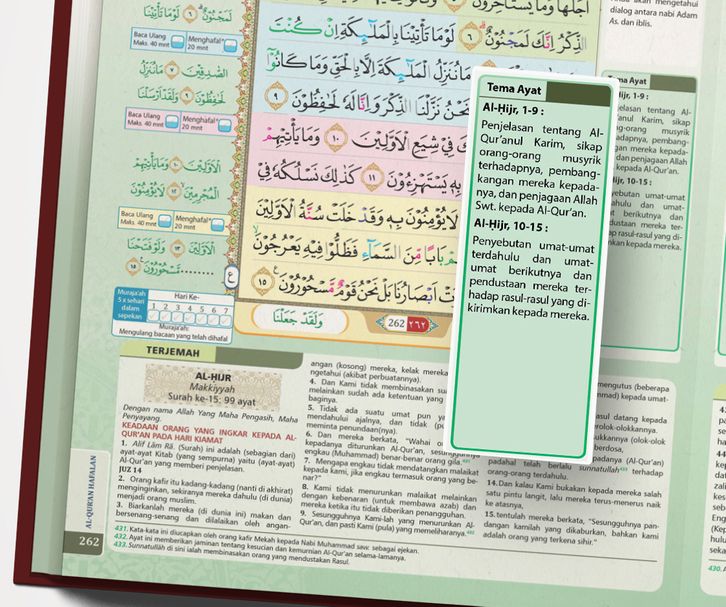 اجلها وما يستأخرون
الذِّكْرُ اِنَّكَ لَمَجْنُوْنٌ ۗ ٦ لَوْمَا تَأْتِيْنَا بِالْمَلٰۤىِٕكَةِ اِنْ كُنْتَ
مَا نُنَزِّلُ الْمَلٰۤىِٕكَةَ اِلَّا بِالْحَقِّ وَمَا كَانُوْٓا
نَحْنُ نَزَّلْنَا الذِّكْرَ وَاِنَّا لَهٗ لَحٰفِظُوْنَ ٩
كَ فِيْ شِيَعِ الْاَوَّلِيْنَ ١٠ وَمَا يَأْتِيْهِمْ
بِهٖ يَسْتَهْزِءُوْنَ ١١ كَذٰلِكَ نَسْلُكُهٗ فِيْ
لَا يُؤْمِنُوْنَ بِهٖ وَقَدْ خَلَتْ سُنَّةُ الْاَوَّلِيْنَ
بَابًا مِّنَ السَّمَاۤءِ فَظَلُّوْا فِيْهِ يَعْرُجُوْنَ
اَبْصَارُنَا بَلْ نَحْنُ قَوْمٌ مَّسْحُوْرُوْنَ ١٥
وَلَقَدْ جَعَلْنَا
262 ٢٦٢
لَمَجْنُوْنٌ ٦ لَوْمَا تَأْتِيْنَا
Baca Ulang Menghafal
Maks. 40 mnt 20 mnt
الصّٰدِقِيْنَ ٧ مَا نُنَزِّلُ
لَحٰفِظُوْنَ ٩ وَلَقَدْ اَرْسَلْنَا
Baca Ulang Menghafal
Maks. 40 mnt 20 mnt
الْاَوَّلِيْنَ ١٠ وَمَا يَأْتِيْهِمْ
الْمُجْرِمِيْنَ ١٢ لَا يُؤْمِنُوْنَ
Baca Ulang Menghafal
Maks. 40 mnt 20 mnt
الْاَوَّلِيْنَ ١٣ وَلَوْ فَتَحْنَا
........ مَّسْحُوْرُوْنَ ١٥
ع
Muraja'ah
5 x sehari
dalam
sepekan
Hari Ke-
1 2 3 4 5 6 7
Muraja'ah:
Mengulang bacaan yang telah dihafal
akan mengetahui
dialog antara nabi Adam
As. dan iblis.
Tema Ayat
Al-Ḥijr, 1-9 :
Penjelasan tentang Al-
Qur'anul Karim, sikap
orang-orang musyrik
terhadapnya, pembang-
kangan mereka kepada-
nya, dan penjagaan Allah
Swt. kepada Al-Qur'an.
Al-Ḥijr, 10-15 :
Penyebutan umat-umat
terdahulu dan umat-
umat berikutnya dan
pendustaan mereka ter-
hadap rasul-rasul yang di-
kirimkan kepada mereka.
TERJEMAH
AL-ḤIJR
Makkiyyah
Surah ke-15: 99 ayat
Dengan nama Allah Yang Maha Pengasih, Maha
Penyayang.
KEADAAN ORANG YANG INGKAR KEPADA AL-
QUR'AN PADA HARI KIAMAT
1. Alif Lām Rā. (Surah) ini adalah (sebagian dari)
ayat-ayat Kitab (yang sempurna) yaitu (ayat-ayat)
Al-Qur'an yang memberi penjelasan.
JUZ 14
2. Orang kafir itu kadang-kadang (nanti di akhirat)
menginginkan, sekiranya mereka dahulu (di dunia)
menjadi orang muslim.
3. Biarkanlah mereka (di dunia ini) makan dan
bersenang-senang dan dilalaikan oleh angan-
angan (kosong) mereka, kelak mereka
ngetahui (akibat perbuatannya).
4. Dan Kami tidak membinasakan su
melainkan sudah ada ketentuan yang
baginya.
5. Tidak ada suatu umat pun ya
mendahului ajalnya, dan tidak (pu
meminta penundaan(nya).
6. Dan mereka berkata, "Wahai
kepadanya diturunkan Al-Qur'an, sesungguhnya
engkau (Muhammad) benar-benar orang gila.
7. Mengapa engkau tidak mendatangkan malaikat
kepada kami, jika engkau termasuk orang yang be-
nar?"
8. Kami tidak menurunkan malaikat melainkan
dengan kebenaran (untuk membawa azab) dan
mereka ketika itu tidak diberikan penangguhan.
9. Sesungguhnya Kami-lah yang menurunkan Al-
Qur'an, dan pasti Kami (pula) yang memeliharanya.
mengutus (beberapa
mad) kepada umat-
sul datang kepada
olok-olokkannya.
ukkannya (olok-olok
berdosa,
padanya (Al-Qur'an)
padahal telah berlalu sunnatullah terhadap
orang-orang terdahulu.
14. Dan kalau Kami bukakan kepada mereka salah
satu pintu langit, lalu mereka terus-menerus naik
ke atasnya,
15. tentulah mereka berkata, "Sesungguhnya pan-
dangan kamilah yang dikaburkan, bahkan kami
adalah orang yang terkena sihir."
431. Kata-kata ini diucapkan oleh orang kafir Mekah kepada Nabi Muhammad saw. sebagai ejekan.
432. Ayat ini memberikan jaminan tentang kesucian dan kemurnian Al-Qur'an selama-lamanya.
433. Sunnatullah di sini ialah membinasakan orang yang mendustakan Rasul.
AL-QUR'AN HAFALAN
262